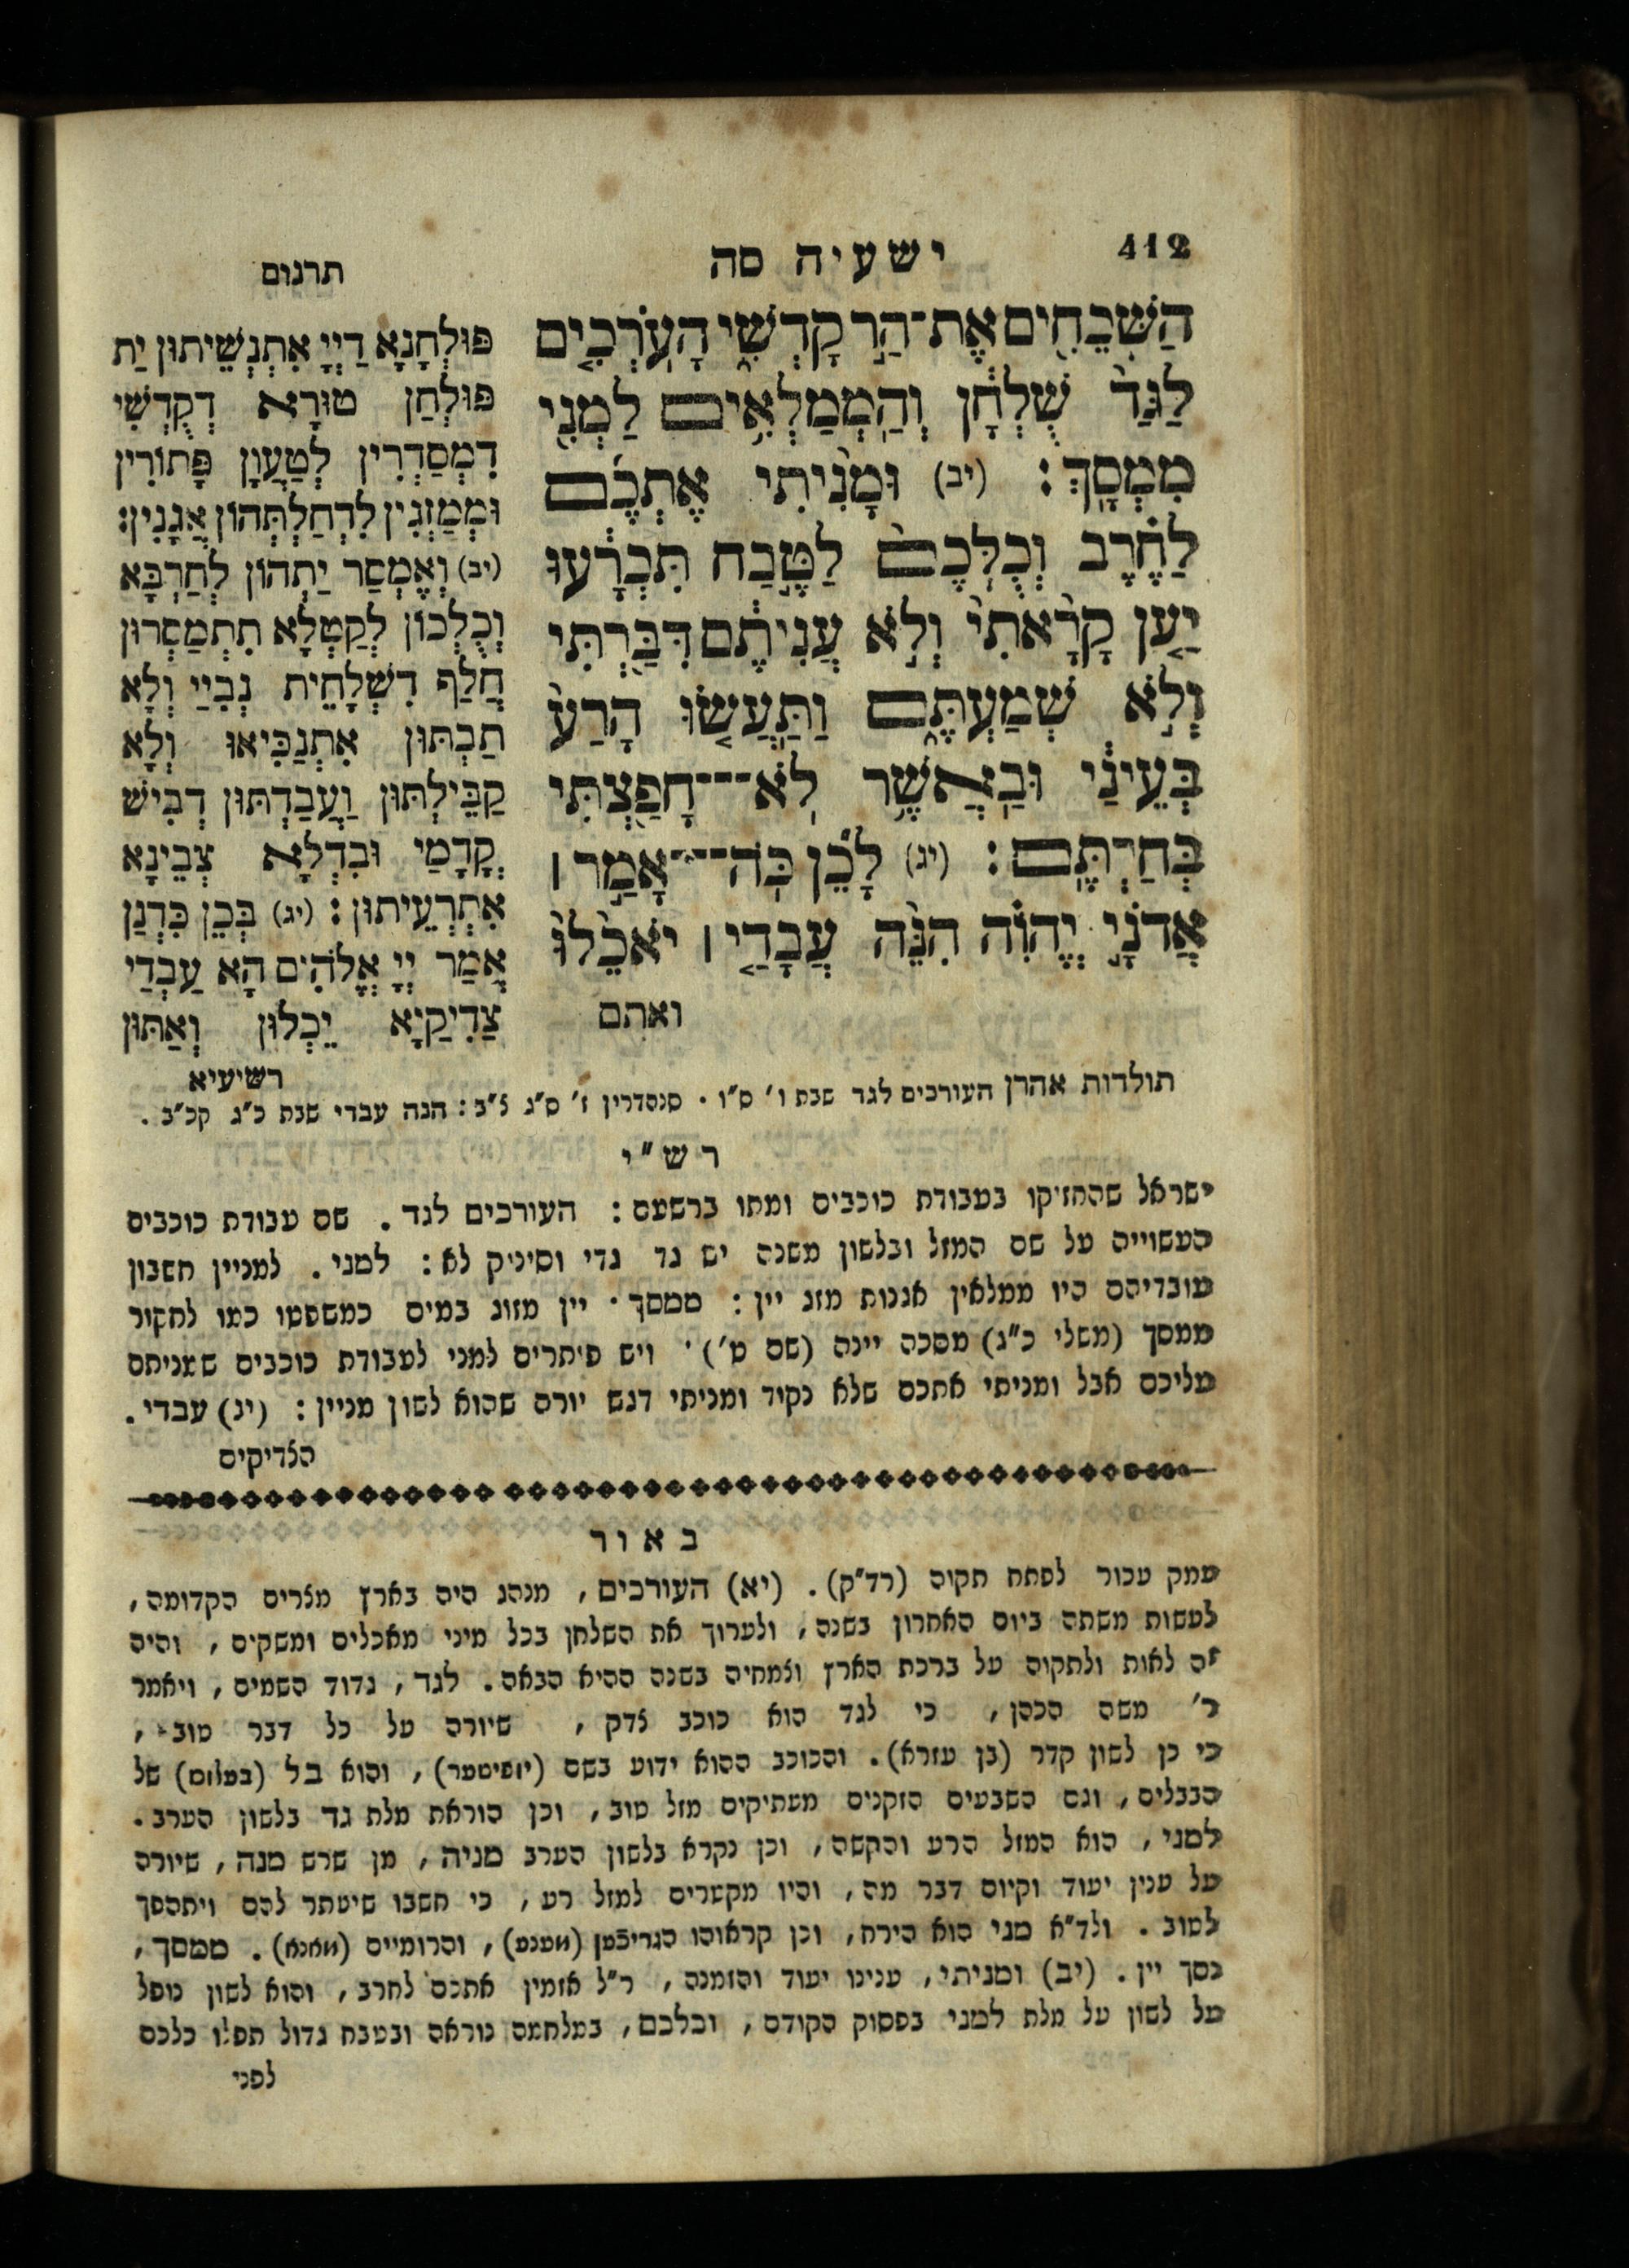 412
ישעיה סה
תרגום
הַשְּׁכֵחִ֖ים אֶת־הַ֣ר קָדְשִׁ֑י הָעֹרְכִ֤ים
לַגַּד֙ שֻׁלְחָ֔ן וְהַֽמְמַלְאִ֖ים לַמְנִ֥י
מִמְסָֽךְ: (יב) וּמָנִ֨יתִי אֶתְכֶ֜ם
לַחֶ֗רֶב וְכֻלְּכֶם֙ לַטֶּ֣בַח תִּכְרָ֔עוּ
יַ֤עַן קָרָ֙אתִי֙ וְלֹ֣א עֲנִיתֶ֔ם דִּבַּ֖רְתִּי
וְלֹ֣א שְׁמַעְתֶּ֑ם וַתַּעֲשׂ֤וּ הָרַע֙
בְּעֵינַ֔י וּבַאֲשֶׁ֥ר לֹֽא־חָפַ֖צְתִּי
בְּחַרְתֶּֽם: (יג) לָכֵ֞ן כֹּה־אָמַ֣ר ׀
אֲדֹנָ֣י יֱהֹוִ֗ה הִנֵּ֨ה עֲבָדַ֤י ׀ יֹאכֵ֙לוּ֙
ואתם
פּוּלְחָנָא דַיְיָ אִתְנְשֵׁיתוּן יַת
פּוּלְחַן טוּרָא דְקֻדְשִׁי
דִמְסַדְרִין לְטַעֲוָן פָּתוֹרִין
וּמְמַזְגִין לִדְחַלְתְּהוֹן אֲגָנִין:
(יב) וְאֶמְסַר יַתְהוֹן לְחַרְבָּא
וְכֻלְכוֹן לְקַטְלָא תִתְמַסְרוּן
חֲלַף דִשְׁלָחֵית נְבִיַי וְלָא
תַבְתּוּן אִתְנַבִּיאוּ וְלָא
קַבֵּילְתּוּן וַעֲבַדְתּוּן דְבִישׁ
קֳדָמַי וּבִדְלָא צְבֵינָא
אִתְרְעֵיתוּן: (יג) בְּכֵן כִּדְנַן
אֲמַר יְיָ אֱלֹהִים הָא עַבְדַי
צַדִיקַיָא יֵכְלוּן וְאַתּוּן
רשיעיא
תולדות אהרן העורכים לגד שבת ו׳ ס״ו. סנהדרין ז׳ ס״ג צ״ב: הנה עבדי שבת כ״ג קנ״ב.
רש״י
ישראל שהחזיקו בעבודת כוכבים ומתו ברשעם: העורכים לגד. שם עבודת כוכבים
העשוייה על שם המזל ובלשון משנה יש גד גדי וסינוק לא: למני. למניין חשבון
עובדיהם היו ממלאין אגנות מזג יין: ממסך. יין מזוג במים כמשפטו כמו לחקור
ממסך (משלי כ״ג) מסכה יינה (שם ט׳). ויש פותרים למני לעבודת כוכבים שמניתם
עליכם אבל ומניתי אתכם שלא נקוד ומניתי דגש יורה שהוא לשון מניין: (יג) עבדי.
הצדיקים
באור
עמק עכור לפתח תקוה (רד״ק). (יא) העורכים, מנהג היה בארץ מצרים הקדומה,
לעשות משתה ביום האחרון בשנה, ולערוך את השלחן בכל מיני מאכלים ומשקים, והיה
זה לאות ולתקוה על ברכת הארץ וצמחיה בשנה ההיא הבאה. לגד, גדוד השמים, ויאמר
ר׳ משה הכהן, כי לגד הוא כוכב צדק, שיורה על כל דבר טוב,
כי כן לשון קדר (בן עזרא). והכוכב ההוא ידוע בשם (יופיטער), והוא בל (בעלוס) של
הבבלים, וגם השבעים הזקנים מעתיקים מזל טוב, וכן הוראת מלת גד בלשון הערב.
למני, הוא המזל הרע והקשה, וכן נקרא בלשון הערב מניה, מן שרש מנה, שיורה
על ענין יעוד וקיום דבר מה, והיו מקטרים למזל רע, כי חשבו שיעתר להם ויתהפך
לטוב. ולד״א מני הוא הירח, וכן קראוהו הגריכען (מענע), והרומיים (מאנא). ממסך,
נסך יין. (יב) ומניתי, ענינו יעוד והזמנה, ר״ל אזמין אתכם לחרב, והוא לשון נופל
על לשון על מלת למני בפסוק הקודם, וכלכם, במלחמה נוראה ובטבח גדול תפלו כלכם
לפני